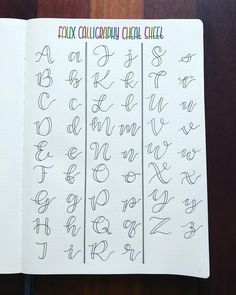 FAUX CALLIGRAPHY CHEAT SHEET
A a
B b
C c
D d
E e
F f
G g
H h
I i
J j
K k
L l
M m
N n
O o
P p
Q q
R r
S s
T t
U u
V v
W w
X x
Y y
Z z